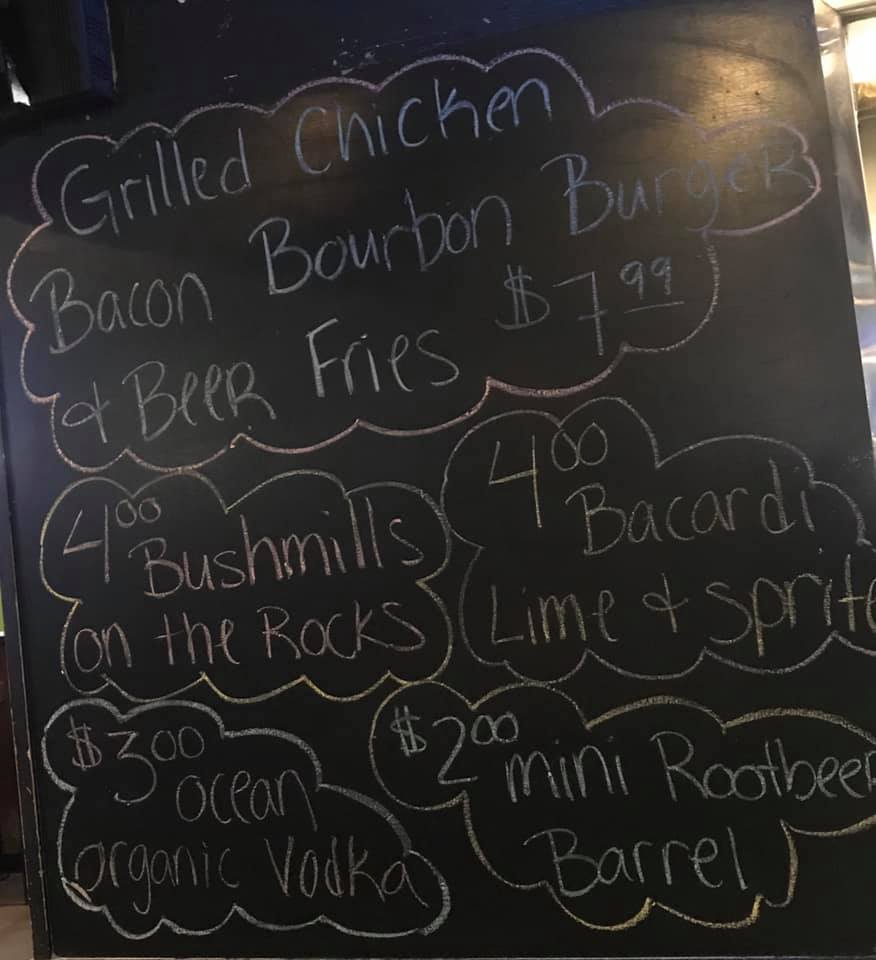 Grilled Chicken
Bacon Bourbon Burger
& Beer Fries $7.99
4.00
Bushmills
on the Rocks
4.00
Bacardi
Lime & Sprite
$3.00
Ocean
Organic Vodka
$2.00
mini Rootbeer
Barrel